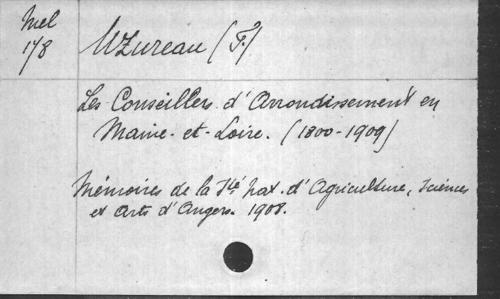 Mel
178
Uzureau (F.)
Les Conseillers d'Arrondissement en
Maine-et-Loire. (1800-1909)
Mémoires de la Sté nat. d'Agriculture, Sciences
et Arts d'Angers. 1908.